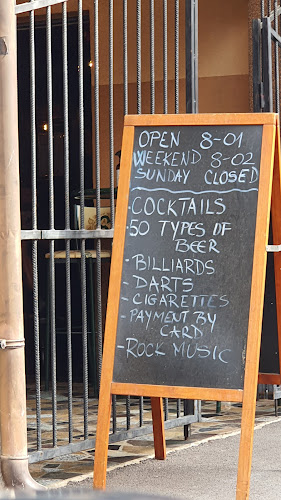 OPEN 8-01
WEEKEND 8-02
SUNDAY CLOSED
-COCKTAILS
-50 TYPES OF
BEER
-BILLIARDS
-DARTS
-CIGARETTES
-PAYMENT BY
CARD
-ROCK MUSIC